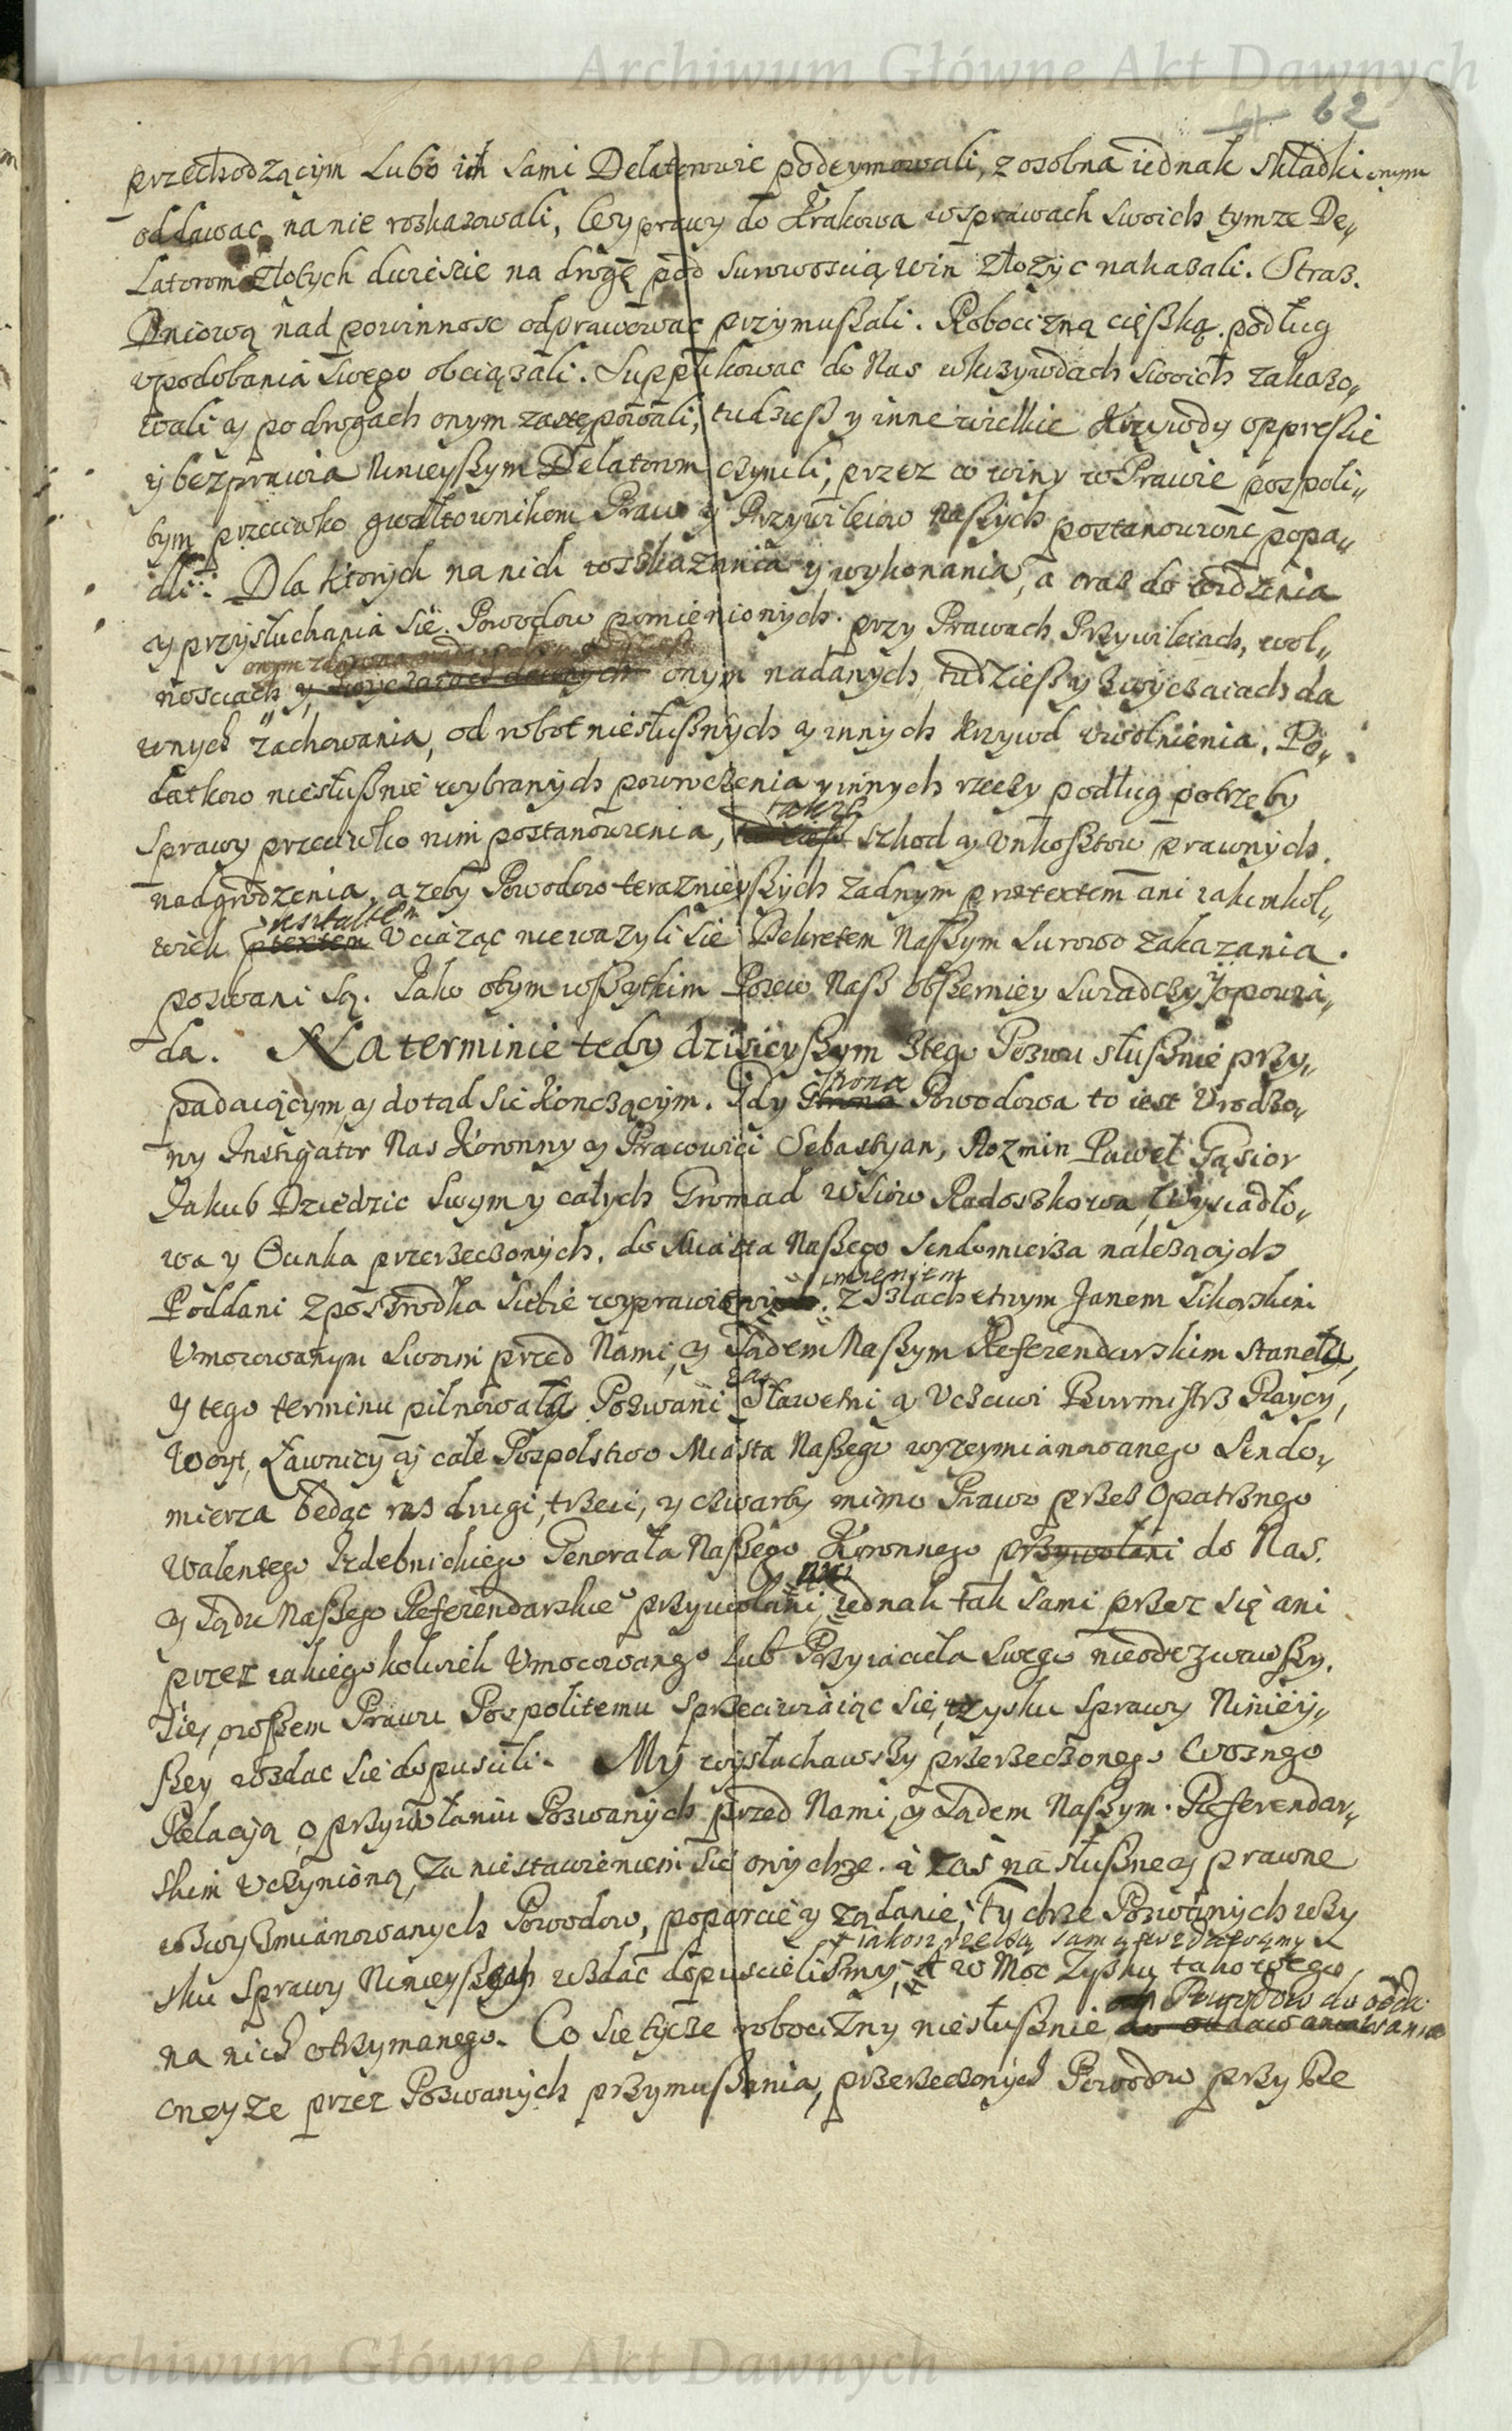 Archiwum Główne Akt Dawnych
62
przechodzącym Lubo ich sami Delatorowie podeymowali, z osobna iednak składki onym
oddawac na nie roskazowali, Wyprawy do Krakowa w sprawach swoich tymze De„
Latorom Złotych dwiescie na drogę pod surowoscią win złozyc nakazali. Straz.
Dniową nad powinnosc odprawowac przymuszali. Robocizną cięszką podług
vpodobania swego obciązali. Supplikowac do Nas w krzywdach swoich zakazo„
wali y po drogach onym zastępowali, tudziesz y inne wielkie Krzywdy oppressie
y bezprawia Ninieyszym Delatorom czynili, przez co winy w Prawie pospoli„
tym przeciwko gwałtownikom Praw y Przywileiow Naszych postanowione popa„
dli: Dla ktorych na nich roskazania y wykonania, a oraz do widzenia
y przysłuchania się Powodow pomienionych przy Prawach Przywileiach, wol„
nosciach y zwyczaiach dawnych onym nadanych, tudziesz y zwyczaiach da
wnych zachowania, od robot niesłusznych y innych krzywd vwolnienia. Po„
datkow niesłusznie wybranych powrocenia y innych rzeczy podług potrzeby
Sprawy przeciwko nim postanowienia, takze szkod y Vnkosztow prawnych
nadgrodzenia, a zeby Powodow teraznieyszych zadnym pretextem ani iakimkol„
wiek ptextem kształtem Vciązac niewazyli się Dekretem Naszym surowo zakazania.
pozwani są. Iako o tym wszytkim Pozew Nasz obszerniey swiadczy y opowia„
da. Na terminie tedy dzisieyszym z tego Pozwu słusznie przy„
padaiącym y dotąd się konczącym. Gdy Strona strona Powodowa to iest Vrodzo„
ny Instigator Nas Koronny y Pracowici Sebastyan, Rozmin Paweł Gąsior
Iakub Dziedzic swym y całych Gromad wsiow Radoszkowa, Wysiadło„
wa y Ocinka przerzeczonych, do Miasta Naszego Sendomierza nalezących
Poddani z posrodka siebie wyprawieni imieniem z Szlachetnym Janem Sikorskim
Vmocowanym swoim przed Nami, y Sądem Naszym Referendarskim staneły,
y tego terminu pilnowały Pozwani zas Sławetni y Vczciwi Burmistrz Raycy,
Woyt, Ławnicy y całe Pospolstwo Miasta Naszego wyzeymianowanego Sendo„
mierza będąc raz drugi, trzeci, y czwarty mimo Prawo przez Opatrznego
Walentego Izdebnickiego Generała Naszego Koronnego przywołani do Nas
y Sądu Naszego Referendarskie° przywołani iednak tak sami przez się ani
przez iakiegokolwiek Vmocowanego lub Przyiaciela swego nieodezwawszy
się, owszem Prawu Pospolitemu sprzeciwiaiąc się, w zysku Sprawy Niniey„
szey wzdac się dopuscili. My wysłuchawszy przerzeczonego Woznego
Relacyą o przywołaniu Pozwanych przed Nami, y Sądem Naszym Referendar„
skim Vczynioną, za niestawieniem się onychze. a zas na słuszne y prawne
wzwyzmianowanych Powodow, poparcie y ządanie, Tychze Pozwanych w zy
sku Sprawy Ninieyszey wzdac dopuscilismy, A w Moc Zysku takowego
na nich otrzymanego. Co się tycze robocizny niesłusznie Powodow do odda
oneyze przez Pozwanych przymuszania, przerzeczonych Powodow przy Re
Archiwum Główne Akt Dawnych